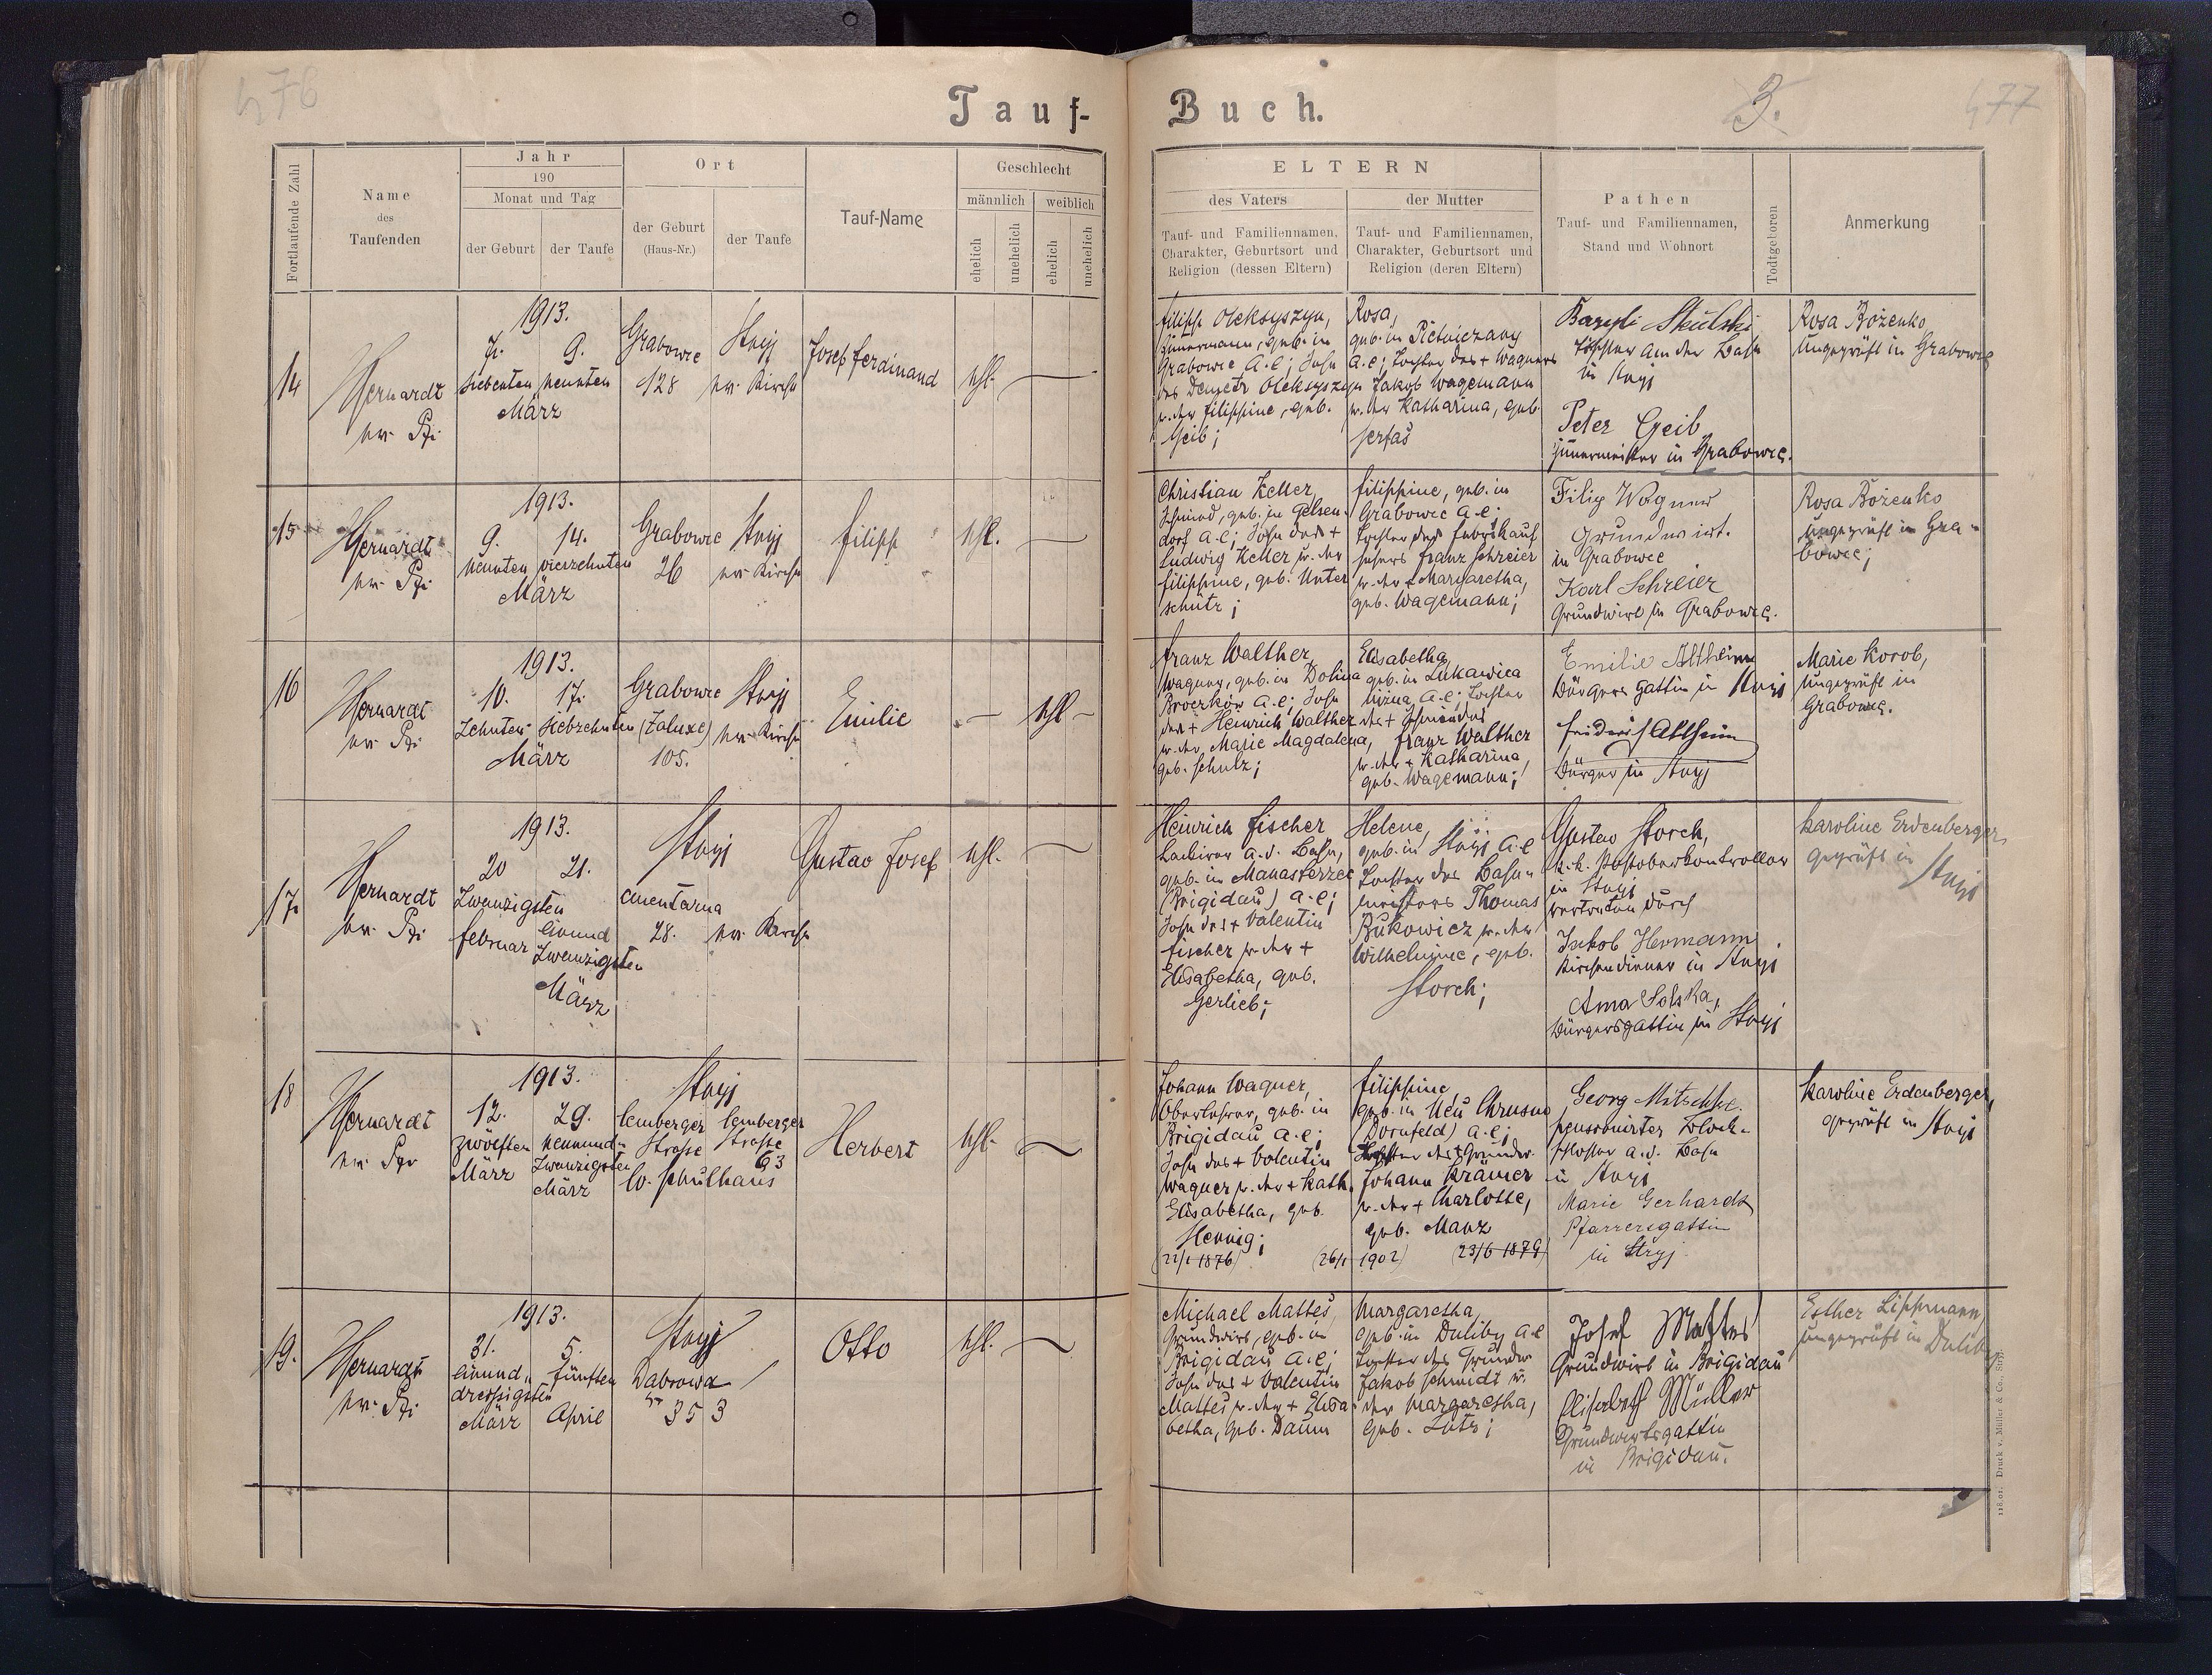 476
Tauf-
Buch.
3.
477
Fortlaufende Zahl
Name
des
Taufenden
Jahr
190
Monat und Tag
der Geburt
der Taufe
Ort
der Geburt
(Haus-Nr.)
der Taufe
Tauf-Name
Geschlecht
männlich
weiblich
ehelich
unehelich
ehelich
unehelich
ELTERN
des Vaters
Tauf- und Familiennamen,
Charakter, Geburtsort und
Religion (dessen Eltern)
der Mutter
Tauf- und Familiennamen,
Charakter, Geburtsort und
Religion (deren Eltern)
Pathen
Tauf- und Familiennamen,
Stand und Wohnort
Todtgeboren
Anmerkung
14
1913.
7. 9.
siebenten neunten
März
Grabowce
128
Stryj
ev. Kirche
Josef Ferdinand
ehl.
Filipp Oleksyszyn,
Zimmermann, geb. in
Grabowce A.C; Sohn
des Demetr Oleksyszyn
u. der Filippine, geb.
Geib;
Rosa,
geb. in Pietniczany
A.C; Tochter des + Wagners
Jakob Wagemann
u. der Katharina, geb.
Serfas
an der Bahn
in Stryj
Peter Geib
Zimmermeister in Grabowce.
Rosa Bożenko
ungeprüft in Grabowce
15
1913.
9. 14.
neunten vierzehnten
März
Grabowce
26
Stryj
ev. Kirche
Filipp
ehl.
Christian Keller,
Schmied, geb. in Gelsen-
dorf A.C; Sohn des +
Ludwig Keller u. der
Filippine, geb. Unter
schütz;
Filippine, geb. in
Grabowce A.C.
Tochter des
Franz Schreier
u. der + Margaretha,
geb. Wagemann;
Filip Wagner
Grundwirt.
in Grabowce
Karl Schreier
Grundwirt in Grabowce.
Rosa Bożenko
ungeprüft in Gra-
bowce;
16
1913.
10. 17.
Zehnten Siebzehnten
März
Grabowce
(Zaluże)
105.
Stryj
ev. Kirche
Emilie
ehl.
Franz Walther,
Wagner, geb. in Dolina
Broczków A.C; Sohn
des + Heinrich Walther
u. der Marie Magdalena,
geb. Schulz;
Elisabetha,
geb. in Lukawica
niżna A.C; Tochter
des + Schmiedes
Franz Walther
u. der + Katharina,
geb. Wagemann;
Emilie Altheim
Bürgersgattin in Stryj
Friedrich Altheim
Bürger in Stryj
Marie Korob,
ungeprüft in
Grabowce.
17
1913.
20 21.
Zwanzigsten
Februar
Einund
Zwanzigsten
März
Stryj
cmentarna
28.
ev. Kirche
Gustav Josef
ehl.
Heinrich Fischer
Lackierer a.d. Bahn,
geb. in Manasterzec
(Brigidau) A.C;
Sohn des + Valentin
Fischer u. der +
Elisabetha, geb.
Gerlieb;
Helene,
geb. in Stryj A.C
Tochter des Bahn-
meisters Thomas
Bukowicz u. der
Wilhelmine, geb.
Storch;
Gustav Storch,
k.k. Postoberkontrollor
in Stryj
vertreten durch
Jakob Hermann
Kirchendiener in Stryj
Anna Solska,
Bürgersgattin in Stryj
Karoline Erdenberger,
geprüft in
Stryj
18
1913.
12. 29.
zwölften neunund-
März Zwanzigsten
März
Stryj
Lemberger Lemberger
Strasse Strasse
63
ev. Schulhaus
Herbert
ehl.
Johann Wagner,
Oberlehrer, geb. in
Brigidau A.C;
Sohn des + Valentin
Wagner u. der + Kath.
Elisabetha, geb.
Hennig;
Filippine,
geb. in Neu Chrusno
(Dornfeld) A.C;
Johann Krämer
u. der + Charlotte,
geb. Manz
1902) (23/6 1879)
Georg Mitschke.
pensionirter Block-
schlosser a.d. Bahn
in Stryj
Marie Gerhardt
Pfarrersgattin
in Stryj.
Karoline Erdenberger,
geprüft in Stryj
19.
1913.
31. 5.
Einund- fünften
dreissigsten
März April
Stryj
Dabrowa
353
Otto
ehl.
Michael Mattes,
Grundwirt, geb. in
Brigidau A.C;
Sohn des + Valentin
Mattes u. der + Elisa-
betha, geb. Daum
Margaretha,
geb. in Duliby A.C
Tochter des Grundw.
Jakob Schmidt u.
der Margaretha,
geb. Lutz;
Josef Mattes
Grundwirt in Brigidau
Elisabeth Müller
Grundwirtsgattin
in Brigidau.
Esther Lippmann,
ungeprüft in Duliby
118.01. Druck v. Müller & Co. Stryj.